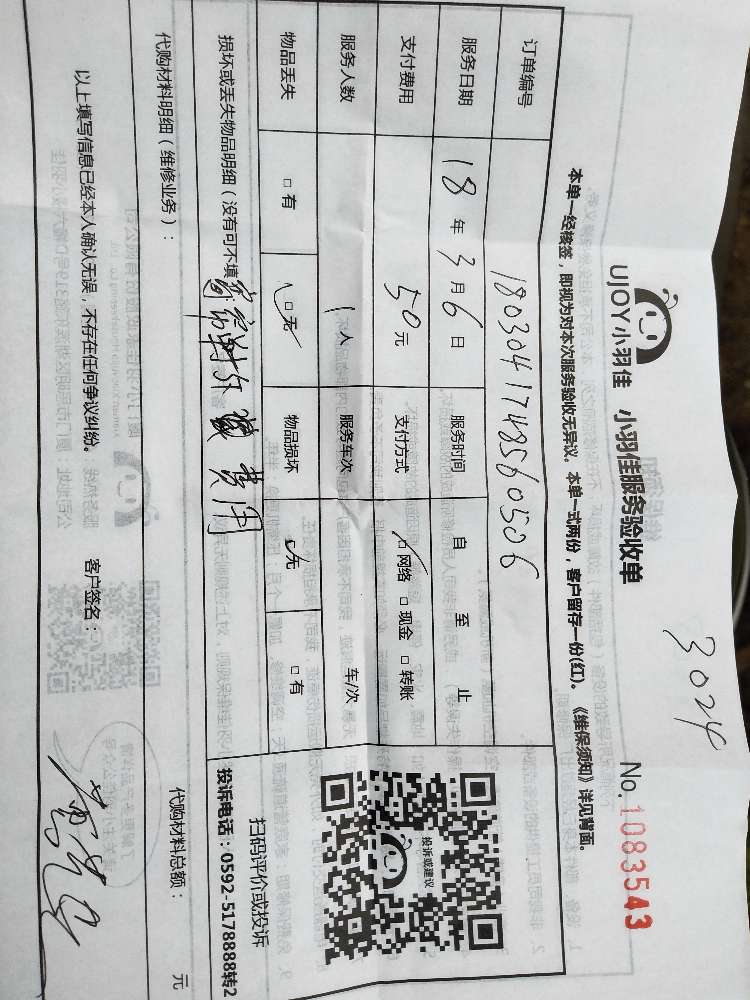 3024
UJOY小羽佳 小羽佳服务验收单 No. 1083543
本单一经核签，即视为对本次服务验收无异议。本单一式两份，客户留存一份(红)。《维保须知》详见背面。
订单编号 18030417485605026
服务日期 18 年 3 月 6 日 服务时间 自 至 止
支付费用 50 元 支付方式 ☑ 网络 □ 现金 □ 转账
服务人数 1 人 服务车次 车/次
物品丢失 □ 有 ☑ 无 物品损坏 ☑ 无 □ 有
投诉或建议
扫码评价或投诉
投诉电话：0592-5178888转2
损坏或丢失物品明细（没有可不填
费用
代购材料明细（维修业务）： 代购材料总额： 元
以上填写信息已经本人确认无误，不存在任何争议纠纷。 客户签名：